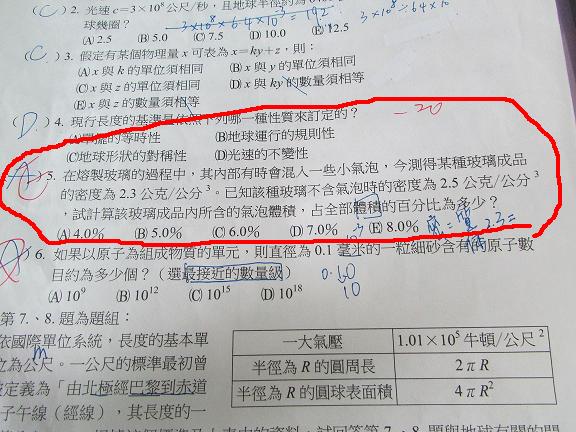 (C) 2. 光速 c=3×10⁸公尺/秒，且地球半徑約為
球幾圈？ 3×10⁸÷64×10⁵=192
(A) 2.5 (B) 5.0 (C) 7.5 (D) 10.0 (E) 12.5
(C) 3. 假定有某個物理量 x 可表為 x=ky+z，則：
(A) x 與 k 的單位須相同 (B) x 與 y 的單位須相同
(C) x 與 z 的單位須相同 (D) x 與 ky 的數量須相等
(E) x 與 z 的數量須相等
(D) 4. 現行長度的基準是依照下列哪一種性質來訂定的？ -20
(A)單擺的等時性 (B)地球運行的規則性
(C)地球形狀的對稱性 (D)光速的不變性
5. 在熔製玻璃的過程中，其內部有時會混入一些小氣泡，今測得某種玻璃成品
的密度為 2.3 公克/公分³。已知該種玻璃不含氣泡時的密度為 2.5 公克/公分³
，試計算該玻璃成品內所含的氣泡體積，占全部體積的百分比為多少？
(A) 4.0% (B) 5.0% (C) 6.0% (D) 7.0% (E) 8.0%
6. 如果以原子為組成物質的單元，則直徑為 0.1 毫米的一粒細砂含有的原子數
目約為多少個？（選最接近的數量級）
(A) 10⁹ (B) 10¹² (C) 10¹⁵ (D) 10¹⁸
10
第 7.、8. 題為題組：
依國際單位系統，長度的基本單
m
位為公尺。一公尺的標準最初曾
被定義為「由北極經巴黎到赤道
子午線（經線），其長度的一
一大氣壓 1.01×10⁵ 牛頓/公尺²
半徑為 R 的圓周長 2πR
半徑為 R 的圓球表面積 4πR²